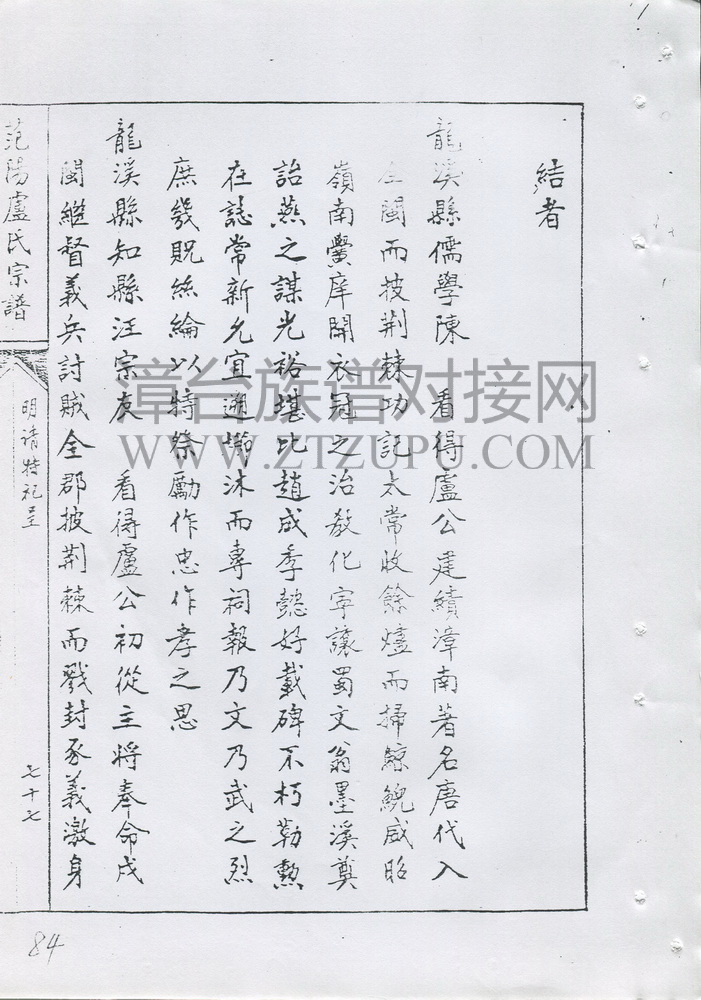 結者
龍溪縣儒學陳 看得盧公建績漳南著名唐代入
全閩而披荆棘功記太常收餘燼而掃鯨鯢威昭
嶺南黌庠開衣冠之治教化字讓蜀文翁墨溪奠
詒燕之謀光裕堪比趙成季懿好載碑不朽勒勲
在誌常新允宜遡沐而專祠報乃文乃武之烈
庶幾貺絲綸以特祭勵作忠作孝之思
龍溪縣知縣汪宗友 看得盧公初從主將奉命戍
閩繼督義兵討賊全郡披荆棘而戮封豕義激身
范陽盧氏宗譜
明請特祀呈
七十七
84
漳台族谱对接网
WWW.ZTZUPU.COM